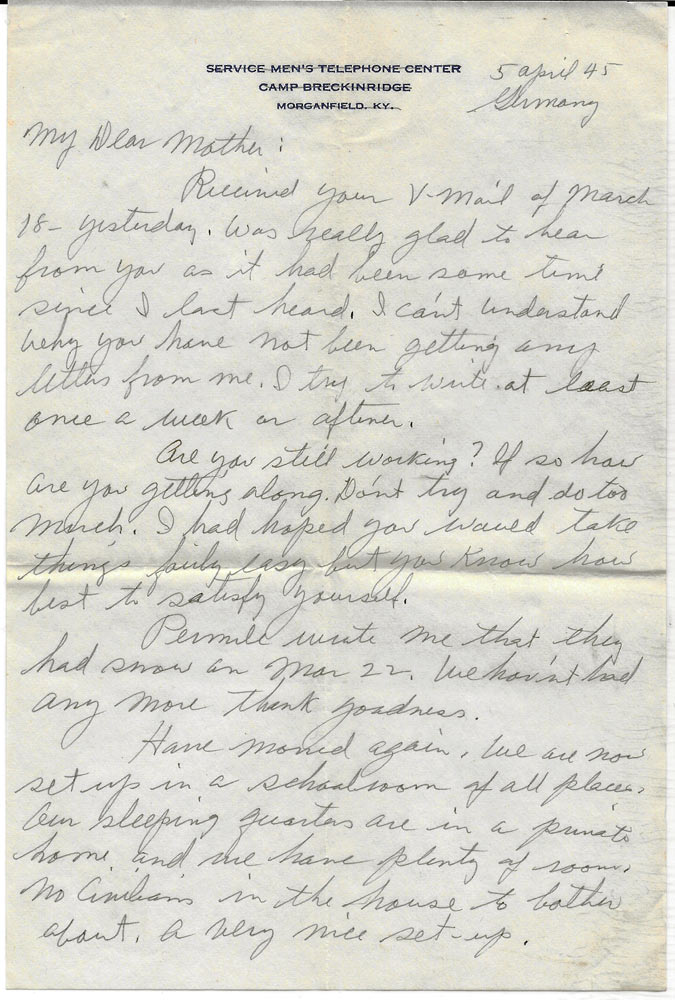 SERVICE MEN'S TELEPHONE CENTER
CAMP BRECKINRIDGE
MORGANFIELD, KY.
5 april 45
Germany
My Dear Mother:
Received your V-Mail of March
18- yesterday. Was really glad to hear
from you as it had been some time
since I last heard. I can't understand
why you have not been getting any
letters from me. I try to write at least
once a week or oftener.
Are you still working? If so how
are you getting along. Don't try and do too
much. I had hoped you would take
things fairly easy but you know how
best to satisfy yourself.
wrote me that they
had snow on Mar 22. We hav'nt had
any more thank goodness.
Have moved again. We are now
set up in a schoolroom of all places.
Our sleeping quarters are in a private
home and we have plenty of room.
No Civilians in the house to bother
about. A very nice set-up.